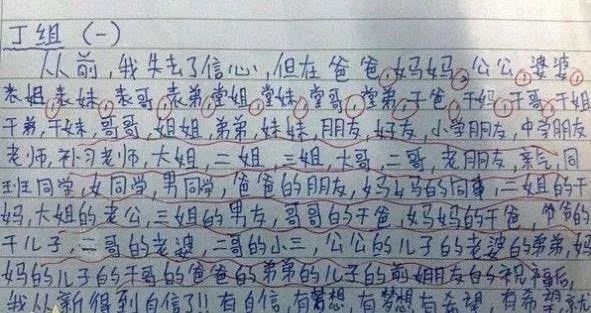 丁组 (一)
从前,我失去了信心,但在爸爸,妈妈,公公,婆婆
表姐,表妹,表哥,表弟,堂姐,堂妹,堂哥,堂弟,干爸,干妈,干哥,干姐
干弟,干妹,哥哥,姐姐,弟弟,妹妹,朋友,好友,小学朋友,中学朋友
老师,补习老师,大姐,二姐,三姐,大哥,二哥,老朋友,亲气,同
班同学,女同学,男同学,爸爸的朋友,妈妈的同事,二姐的干
妈,大姐的老公,三姐的男友,哥哥的干爸,妈妈的干爸,爷爷的
干儿子,二哥的老婆,二哥的小三,公公的儿子的老婆的弟弟,妈
妈的儿子的干哥的爸爸的弟弟的儿子的前朋友的祝福后,
我从新得到自信了!!有自信,有梦想,有梦想有希望,有希望,就